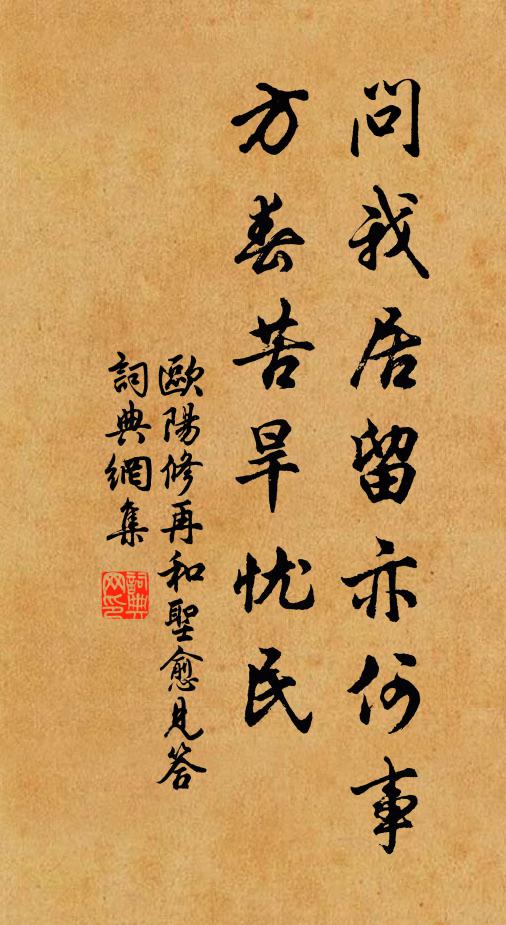 問我居留亦何事
方春苦旱忧民
歐陽修再和聖愈見答
詞典網集
詞典网印